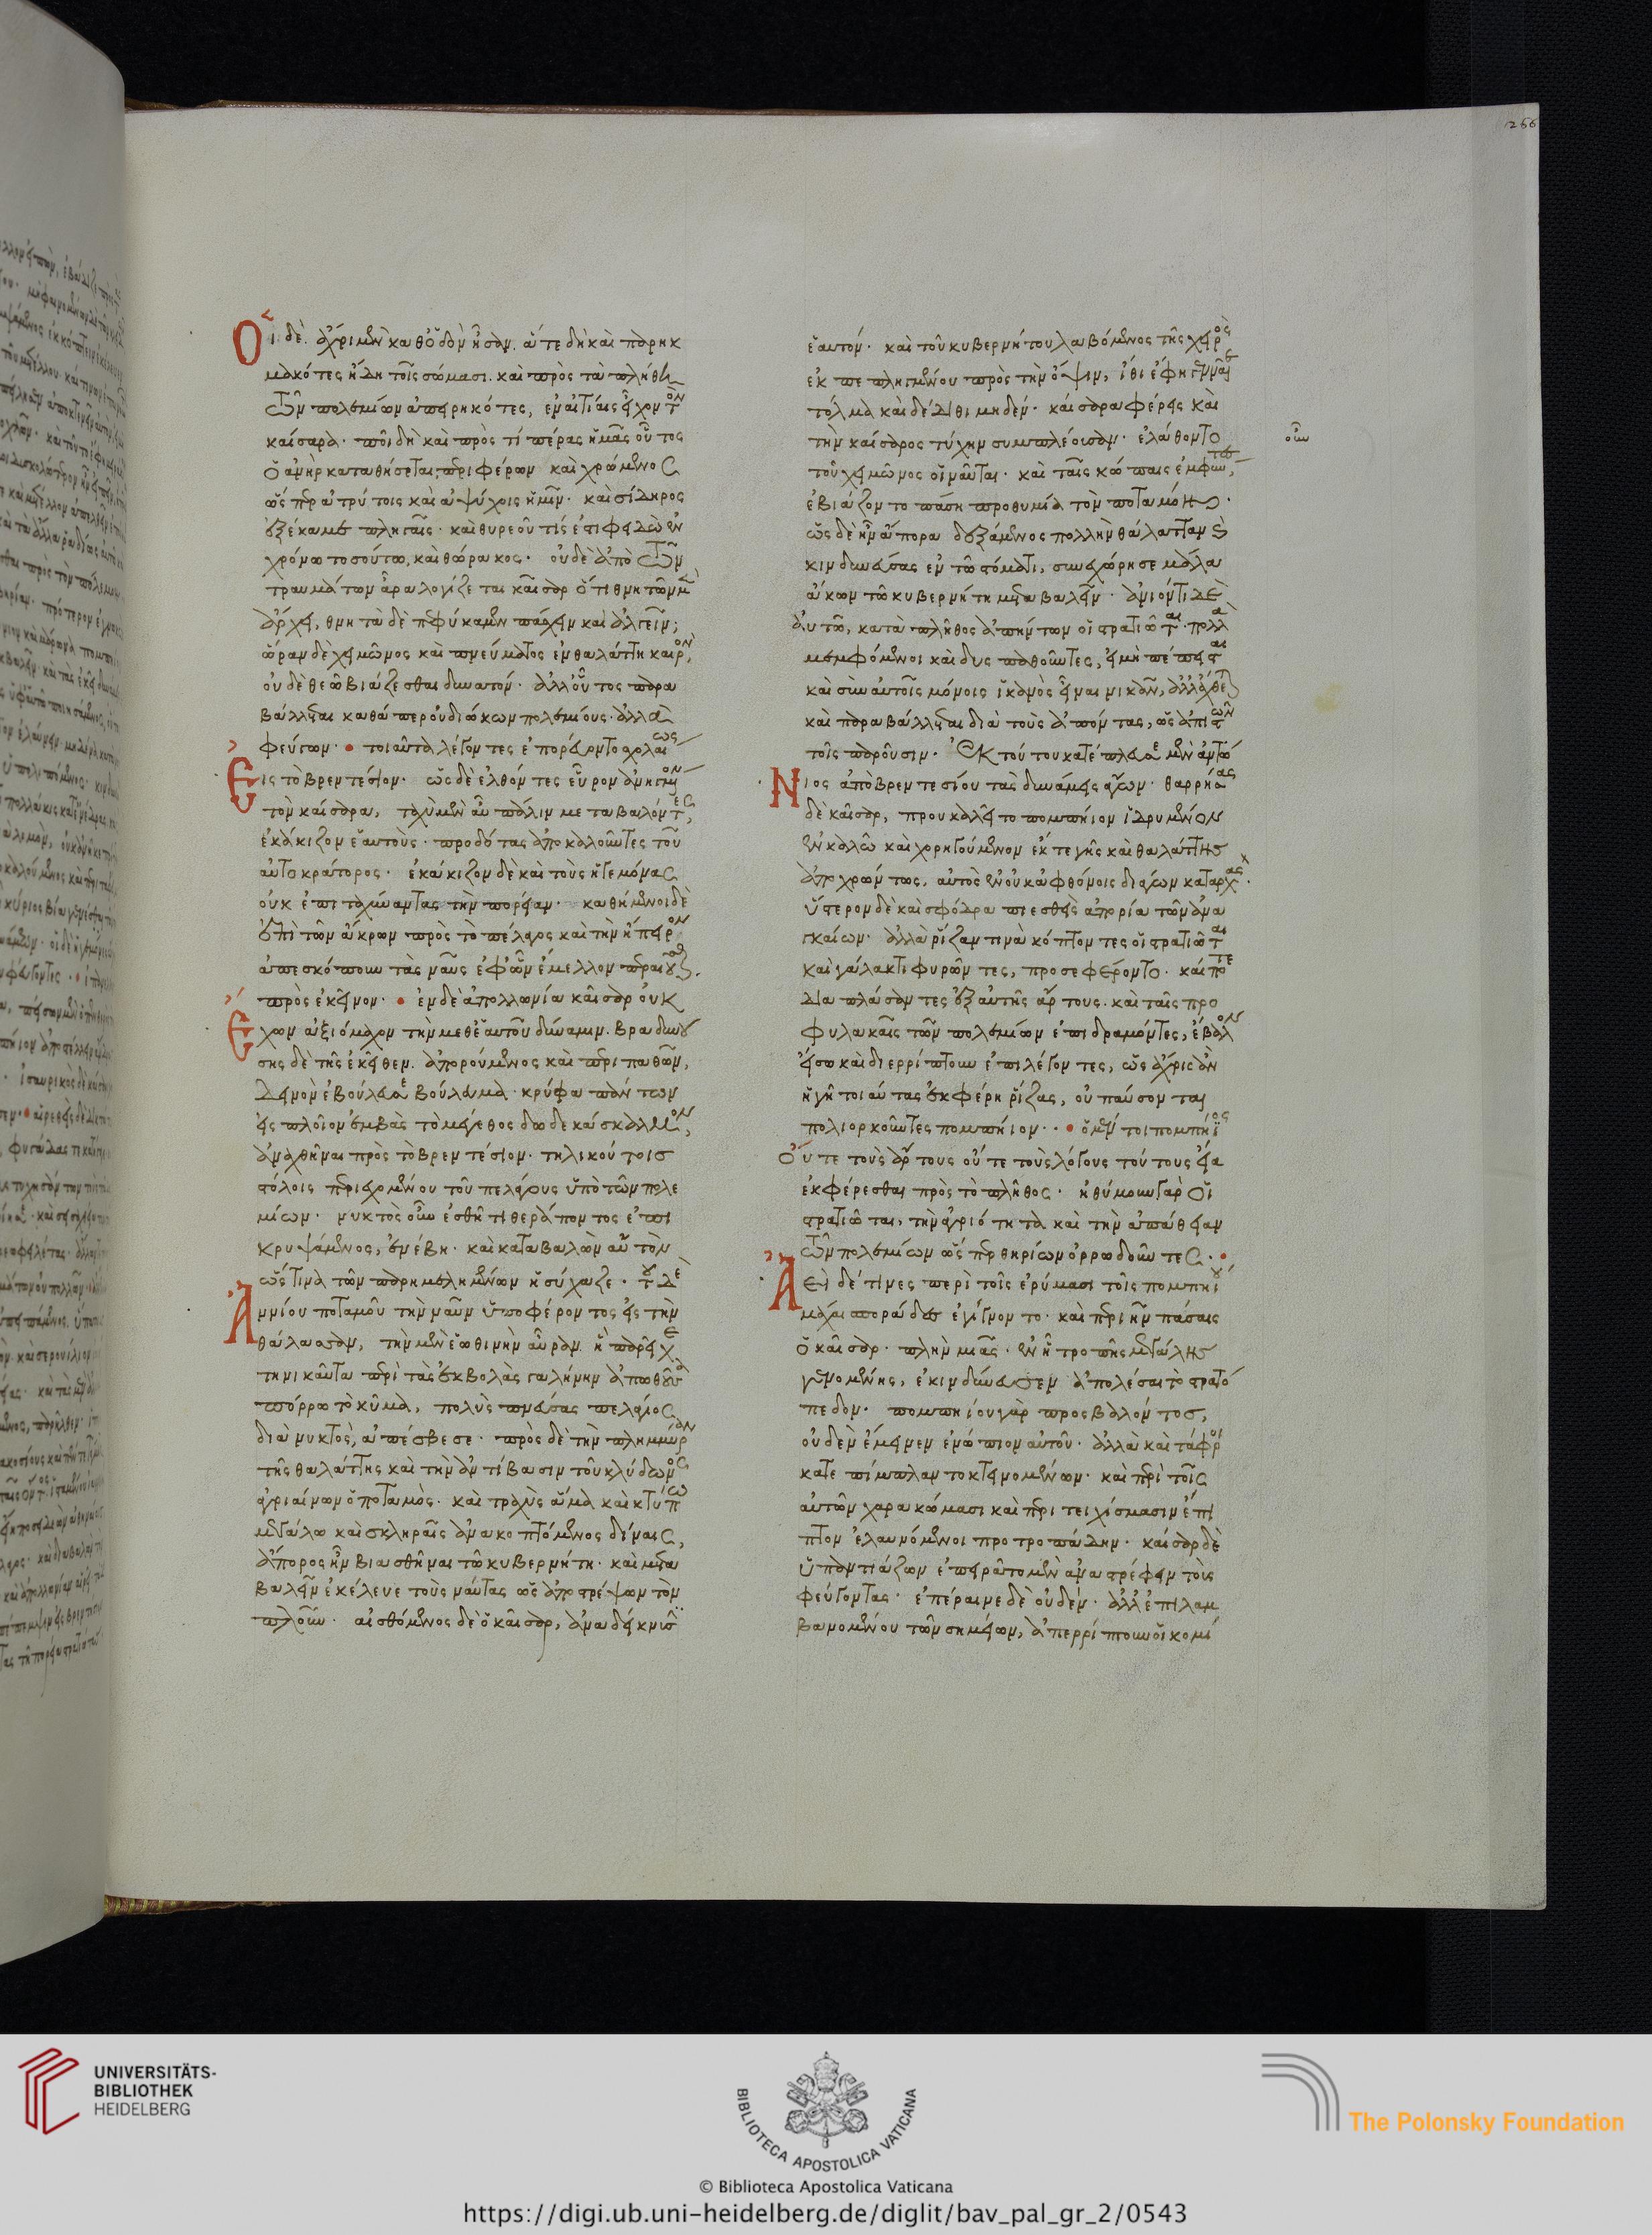 Οἱ δὲ ἄχρι μὲν καθ' ὁδὸν ἦσαν. ἅτε δὴ καὶ παρηκ
μακότες ἤδη τοῖς σώμασι. καὶ πρὸς τὰ πλήθη
τῶν πολεμίων ἀπειρηκότες, ἐν αἰτίαις εἶχον τὸν
καίσαρα· ποῖ δὴ καὶ πρὸς τί πέρας ἡμᾶς οὗτος
ὁ ἀνὴρ καταθήσεται, περιφέρων καὶ χρώμενος
ὥσπερ ἀτρύτοις καὶ ἀψύχοις ἡμῖν· καὶ σίδηρος
ἐξέκαμε πληγαῖς· καὶ θυρεοῦ τίς ἐστι φειδὼ ἐν
χρόνω τοσούτω, καὶ θώρακος· οὐδὲ ἀπὸ τῶν
τραυμάτων ἆρα λογίζεται καῖσαρ ὅτι θνητῶν μὲν
ἄρχει, θνητὰ δὲ πεφύκαμεν πάσχειν καὶ ἀλγεῖν;
ὥραν δὲ χειμῶνος καὶ πνεύματος ἐν θαλάττη καιρὸν,
οὐδὲ θεῶ βιάζεσθαι δυνατόν· ἀλλ' οὗτος παρα
βάλλεται καθάπερ οὐ διώκων πολεμίους· ἀλλὰ
φεύγων· τοιαῦτα λέγοντες ἐπορεύοντο σχολαίως
Εἰς τὸ βρεντέσιον· ὡς δὲ ἐλθόντες εὗρον ἀνηγμένον
τὸν καίσαρα, ταχὺ μὲν αὖ πάλιν μεταβαλόντες,
ἐκάκιζον ἑαυτοὺς· προδότας ἀποκαλοῦντες τοῦ
αὐτοκράτορος· ἐκάκιζον δὲ καὶ τοὺς ἡγεμόνας
οὐκ ἐπιταχύναντας τὴν πορείαν· καθήμενοι δὲ
ἐπὶ τῶν ἄκρων πρὸς τὸ πέλαγος καὶ τὴν ἤπειρον
ἀπεσκόπουν τὰς ναῦς ἐφ' ὧν ἔμελλον περαιοῦσθαι.
πρὸς ἐκεῖνον· ἐν δὲ ἀπολλωνία καῖσαρ οὐκ
Ἔχων ἀξιόμαχον τὴν μεθ' ἑαυτοῦ δύναμιν. βραδυνού
σης δὲ τῆς ἐκεῖθεν. ἀπορούμενος καὶ περιπαθῶν,
δεινὸν ἐβούλευσε βούλευμα· κρύφα πάντων
εἰς πλοῖον ἐμβὰς τὸ μέγεθος δωδεκάσκαλμον,
ἀναχθῆναι πρὸς τὸ βρεντέσιον· τηλικούτοις
στόλοις περιεχομένου τοῦ πελάγους ὑπὸ τῶν πολε
μίων· νυκτὸς οὖν ἐσθῆτι θεράποντος ἐπι
κρυψάμενος, ἐνέβη· καὶ καταβαλὼν αὑτὸν
ὥς τινα τῶν παρημελημένων ἡσύχαζε· τοῦ δὲ
Ἀννίου ποταμοῦ τὴν ναῦν ὑποφέροντος εἰς τὴν
θάλασσαν, τὴν μὲν ἑωθινὴν αὖραν ἣ παρεῖχε
τηνικαῦτα περὶ τὰς ἐκβολὰς γαλήνην ἀπωθοῦσα
πόρρω τὸ κῦμα, πολὺς πνεύσας πελάγιος
διὰ νυκτὸς, ἀπέσβεσε· πρὸς δὲ τὴν πλημμύραν
τῆς θαλάττης καὶ τὴν ἀντίβασιν τοῦ κλύδωνος
ἀγριαίνων ὁ ποταμὸς· καὶ τραχὺς ἅμα καὶ κτύπω
μεγάλω καὶ σκληραῖς ἀνακοπτόμενος δίναις,
ἄπορος ἦν βιασθῆναι τῶ κυβερνήτη· καὶ μετα
βαλεῖν ἐκέλευε τοὺς ναύτας ὡς ἀποστρέψων τὸν
πλοῦν· αἰσθόμενος δὲ ὁ καῖσαρ, ἀναδείκνυσϊ
ἑαυτόν· καὶ τοῦ κυβερνήτου λαβόμενος τῆς χειρὸς
ἐκπεπληγμένου πρὸς τὴν ὄψιν, ἴθι ἔφη γενναῖε
τόλμα καὶ δέδιθι μηδέν· καίσαρα φέρεις καὶ
τὴν καίσαρος τύχην συμπλέουσαν· ἐλάθοντο
τοῦ χειμῶνος οἱ ναῦται· καὶ ταῖς κώπαις ἐμφύντες,
ἐβιάζοντο πάση προθυμία τὸν ποταμόν·
ὡς δὲ ἦν ἄπορα δεξάμενος πολλὴν θάλατταν καὶ
κινδυνεύσας ἐν τῶ στόματι, συνεχώρησε μάλα
ἄκων τῶ κυβερνήτη μεταβαλεῖν· ἀνιόντι δὲ
αὐτῶ, κατὰ πλῆθος ἀπήντων οἱ στρατιῶται· πολλὰ
μεμφόμενοι καὶ δυσπαθοῦντες, εἰ μὴ πέπεισται
καὶ σὺν αὐτοῖς μόνοις ἱκανὸς εἶναι νικᾶν, ἀλλ' ἄχθεται
καὶ παραβάλλεται διὰ τοὺς ἀπόντας, ὡς ἀπιστῶν
τοῖς παροῦσιν· Ἐκ τούτου κατέπλευσε μὲν ἀντώ
Νιος ἀπὸ βρεντεσίου τὰς δυνάμεις ἄγων· θαρρήσας
δὲ καῖσαρ, προυκαλεῖτο πομπήιον ἱδρυμένον
ἐν καλῶ καὶ χορηγούμενον ἔκ τε γῆς καὶ θαλάττης
ἀποχρώντως. αὐτὸς ἐν οὐκ ἀφθόνοις διάγων καταρχάς·
ὕστερον δὲ καὶ σφόδρα πιεσθεὶς ἀπορία τῶν ἀνα
γκαίων· ἀλλὰ ῥίζαν τινὰ κόπτοντες οἱ στρατιῶται
καὶ γάλακτι φυρῶντες, προσεφέροντο· καί ποτε
διαπλάσαντες ἐξ αὐτῆς ἄρτους. καὶ ταῖς προ
φυλακαῖς τῶν πολεμίων ἐπιδραμόντες, ἔβαλον
εἴσω καὶ διερρίπτουν ἐπιλέγοντες, ὡς ἄχρις ἂν
ἡ γῆ τοιαύτας ἐκφέρη ῥίζας, οὐ παύσονται
πολιορκοῦντες πομπήιον· ὁ μέν τοι πομπήϊος
Οὔτε τοὺς ἄρτους οὔτε τοὺς λόγους τούτους εἴα
ἐκφέρεσθαι πρὸς τὸ πλῆθος· ἠθύμουν γὰρ οἱ
στρατιῶται, τὴν ἀγριότητα καὶ τὴν ἀπάθειαν
τῶν πολεμίων ὥσπερ θηρίων ὀρρωδοῦντες·
Ἀεὶ δέ τινες περὶ τοῖς ἐρύμασι τοῖς πομπηίου
μάχαι σποράδες ἐγίγνοντο· καὶ περιῆν πάσαις
ὁ καῖσαρ· πλὴν μιᾶς· ἐν ἧ τροπῆς μεγάλης
γενομένης, ἐκινδύνευσεν ἀπολέσαι τὸ στρατό
πεδον· πομπηίου γὰρ προσβαλόντος,
οὐδεὶς ἔμεινεν ἐνώπιον αὐτοῦ· ἀλλὰ καὶ τάφροι
κατεπίμπλαντο κτεινομένων· καὶ περὶ τοῖς
αὐτῶν χαρακώμασι καὶ περιτειχίσμασιν ἔπι
πτον ἐλαυνόμενοι προτροπάδην· καῖσαρ δὲ
ὑπαντιάζων ἐπειρᾶτο μὲν ἀναστρέφειν τοὺς
φεύγοντας· ἐπέραινε δὲ οὐδέν· ἀλλ' ἐπιλαμ
βανομένου τῶν σημείων, ἀπερρίπτουν οἱ κομί
οὖν
266
UNIVERSITÄTS-
BIBLIOTHEK
HEIDELBERG
BIBLIOTECA APOSTOLICA VATICANA
The Polonsky Foundation
© Biblioteca Apostolica Vaticana
https://digi.ub.uni-heidelberg.de/diglit/bav_pal_gr_2/0543